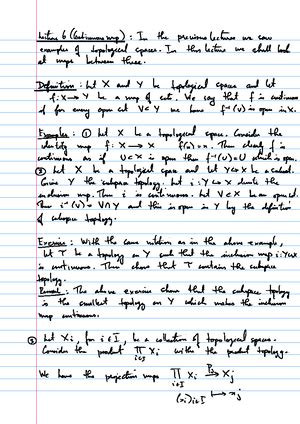 Lecture 6 (Continuous maps) : In the previous lecture we saw
examples of topological spaces. In this lecture we shall look
at maps between these.
Definition : Let X and Y be topological spaces and let
f: X → Y be a map of sets. We say that f is continuous
if for every open set V ⊂ Y we have f⁻¹(V) is open in X.
Examples : ① Let X be a topological space. Consider the
identity map f: X → X f(x) = x. Then clearly f is
continuous as if U ⊂ X is open then f⁻¹(U) = U which is open.
② Let X be a topological space and let Y ⊂ X be a subset.
Give Y the subspace topology, let i : Y ↪ X denote the
inclusion map. Then i is continuous. Let V ⊂ X be an open set.
Then i⁻¹(V) = V ∩ Y and this is open in Y by the definition
of subspace topology.
Exercise : With the same notation as in the above example,
let T be a topology on Y such that the inclusion map i: Y ↪ X
is continuous. Then show that T contains the subspace
topology.
Remark : The above exercise shows that the subspace topology
is the smallest topology on Y which makes the inclusion
map continuous.
③ Let Xᵢ, for i ∈ I, be a collection of topological spaces.
Consider the product ∏ Xᵢ with the product topology.
i∈I
We have the projection maps ∏ Xᵢ → Xⱼ
i∈I
(xᵢ)ᵢ∈I ↦ xⱼ